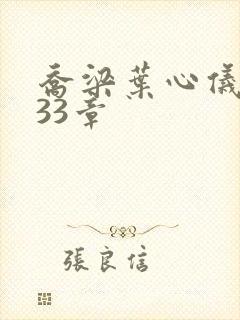 喬梁葉心儀
33章
張良信